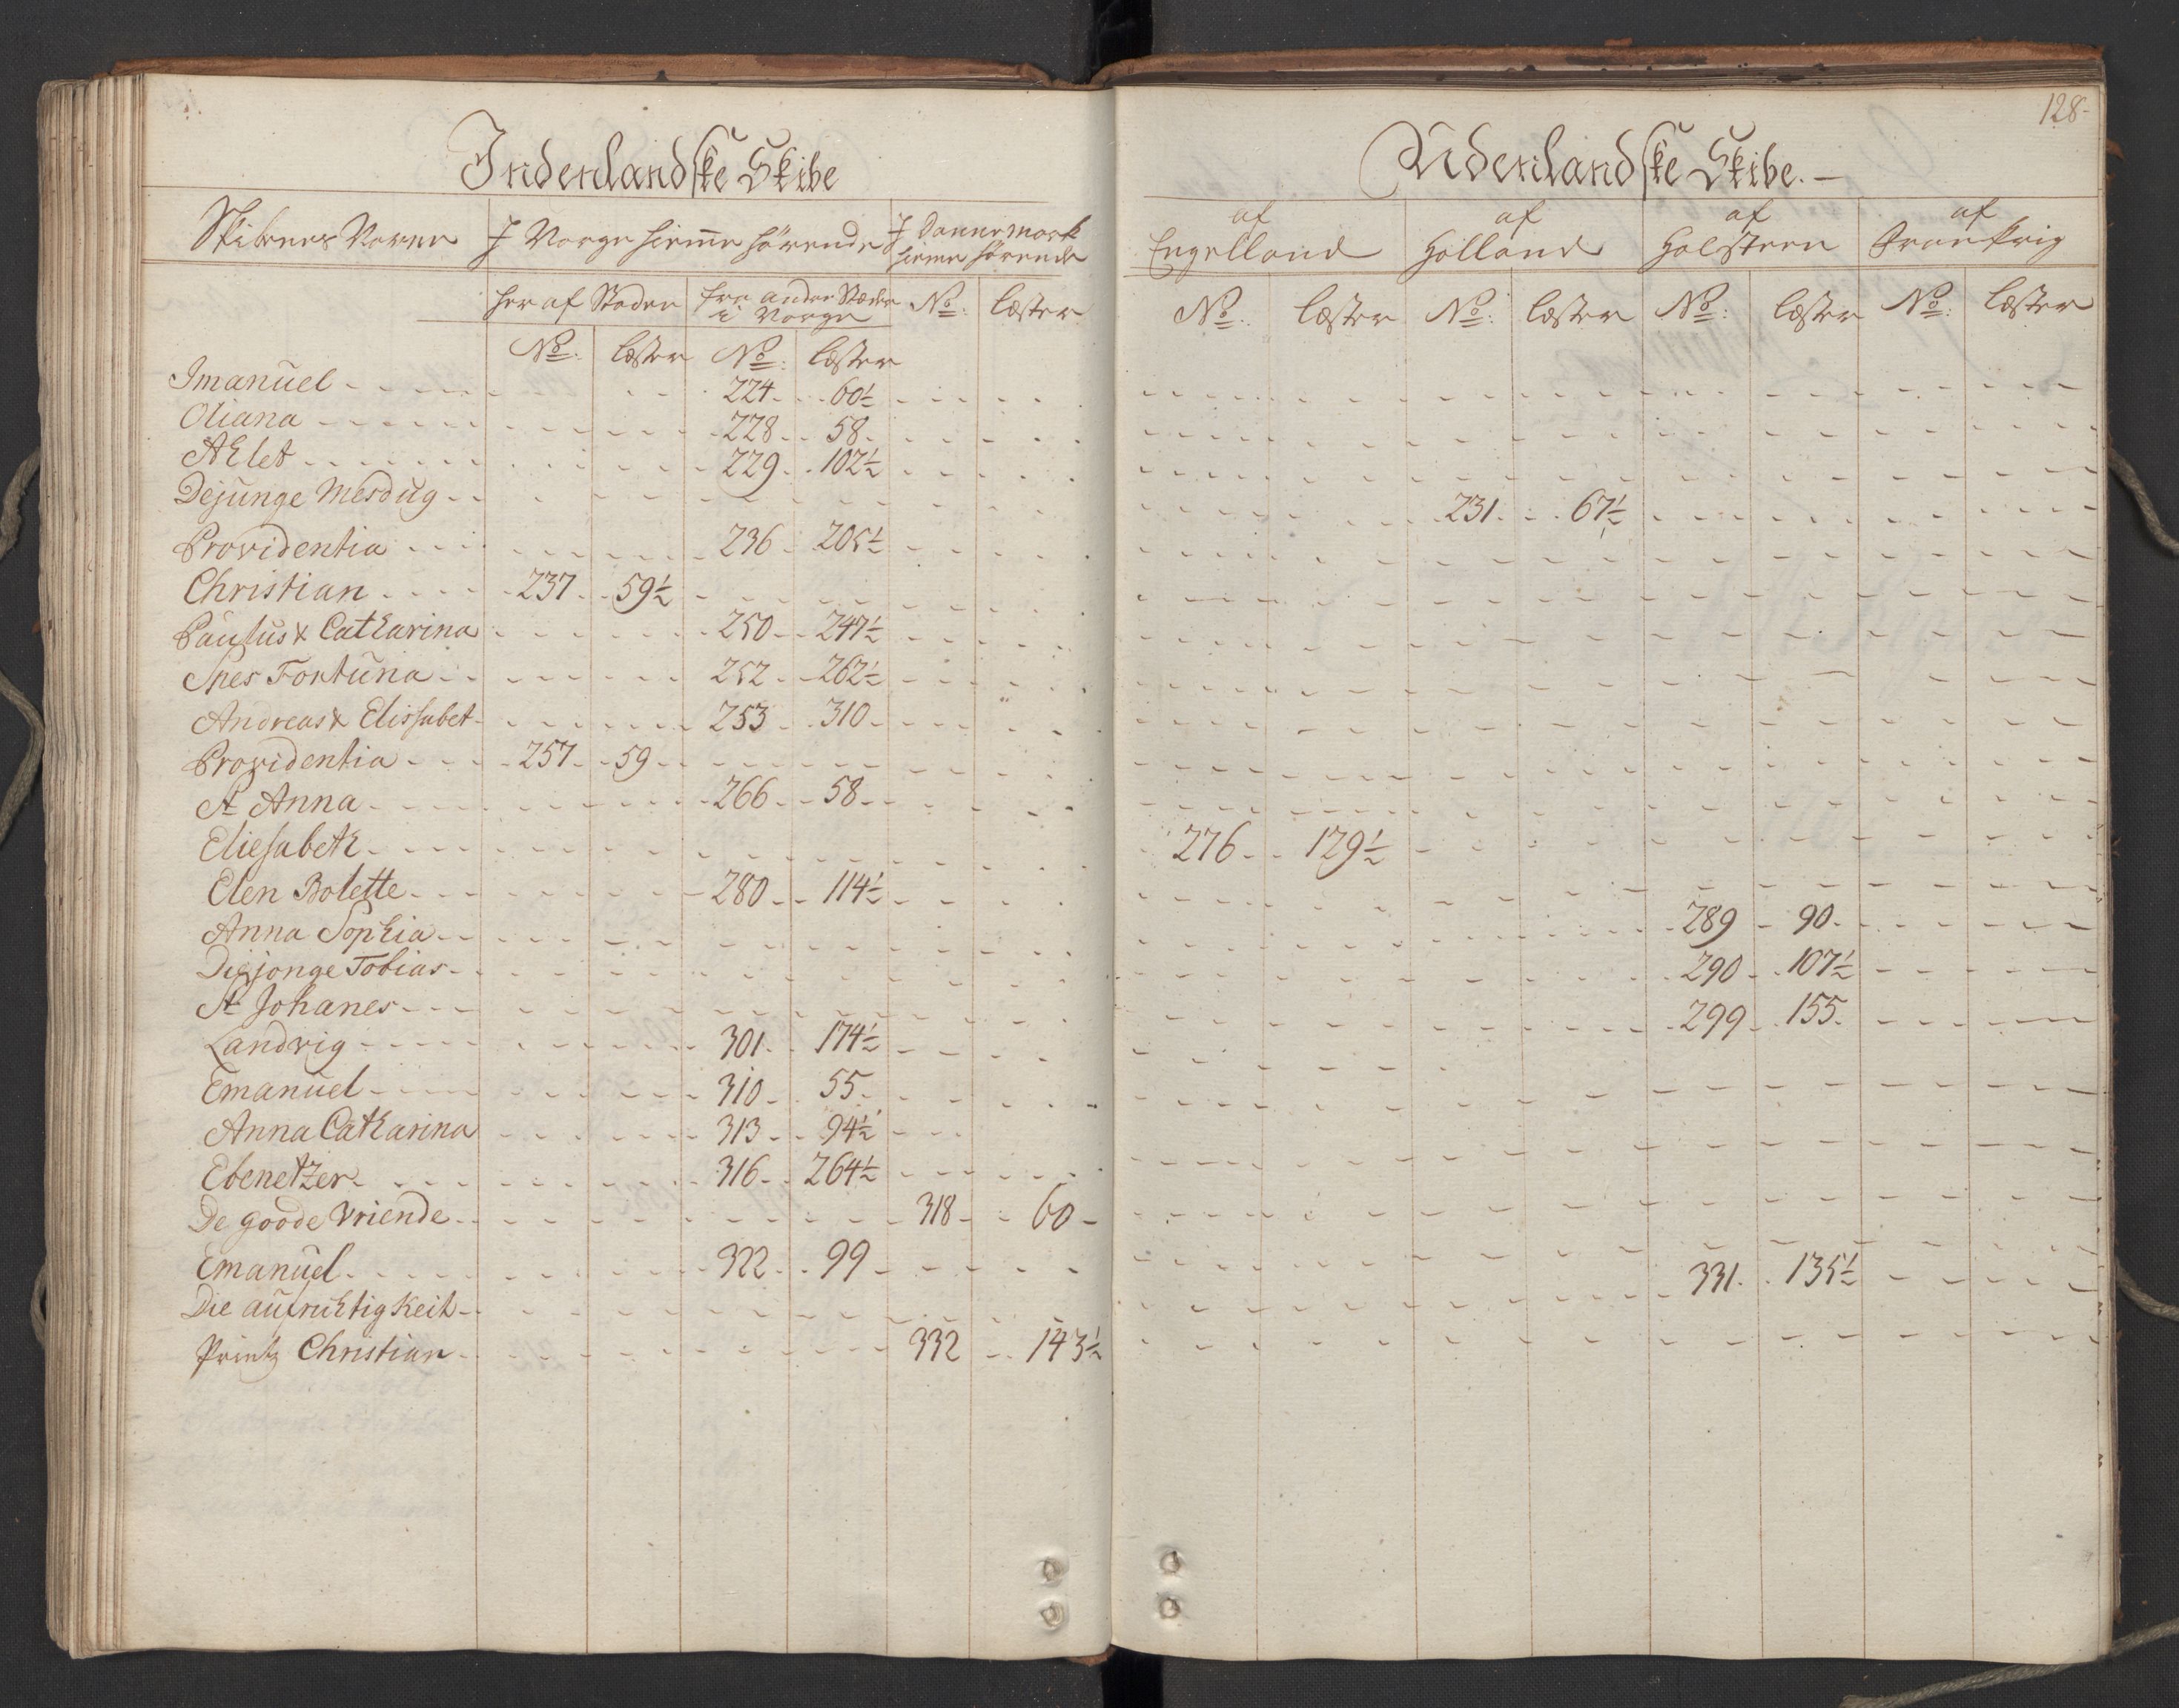 128
Indenlandske Skibe
Udenlandske Skibe.
Skibenes Navne
J Norge hiemme hörende
J Dannemark hiemme hörende
her af Staden
fra andre Stæder i Norge
No: læster
No: læster No: læster
af Engelland af Holland af Holsteen af Frankrig
No: læster No: læster No: læster No: læster
Imanuel 224 60½
Oliana 228 58
Ahlet 229 102½
Dejunge Mesdug 231 67½
Providentia 236 205½
Christian 237 59½
Paulus & Catharina 250 247½
Spes Fortuna 252 262½
Andreas & Elissabet 253 310
Providentia 257 59
St Anna 266 58
Eliesabeth 276 129½
Elen Bolette 280 114½
Anna Sophia 289 90
Die jonge Tobias 290 107½
St Johanes 299 155
Landvig 301 174½
Emanuel 310 55
Anna Catharina 313 94½
Ebenetzer 316 264½
De goode Vriende 318 60
Emanuel 322 99
Die aufrichtigkeit 331 135½
Printz Christian 332 143½